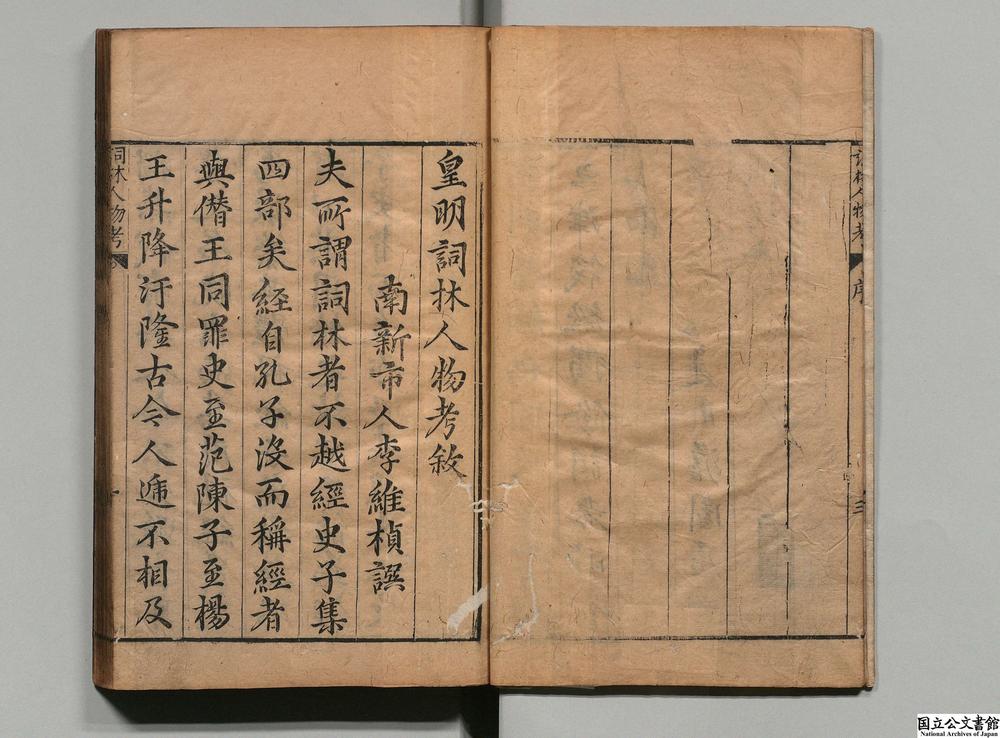 詞林人物考
序
三
皇明詞林人物考敘
南新市人李維楨譔
夫所謂詞林者不越經史子集
四部矣経自孔子没而稱経者
與僣王同罪史至范陳子至楊
王升降汙隆古今人遞不相及
詞林人物考
一
国立公文書館
National Archives of Japan